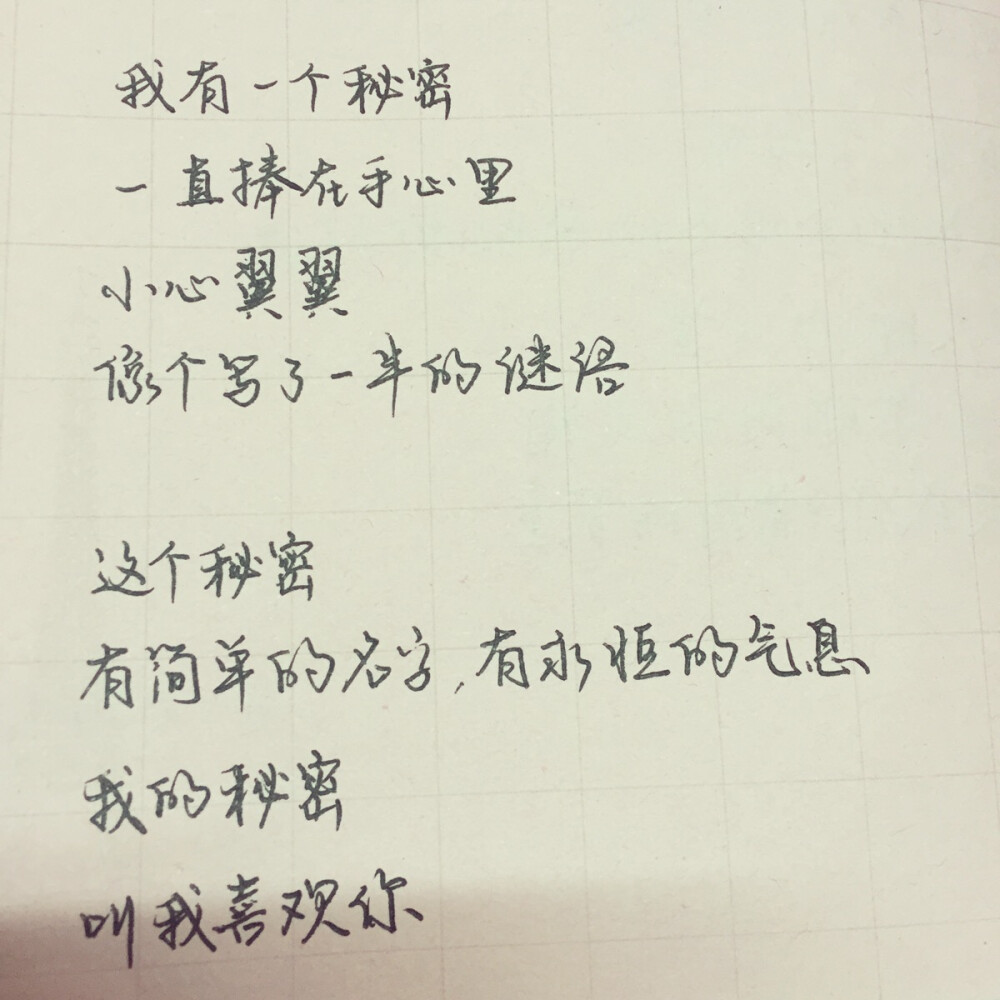 我有一个秘密
一直捧在手心里
小心翼翼
像个写了一半的谜语
这个秘密
有简单的名字,有永恒的气息
我的秘密
叫我喜欢你